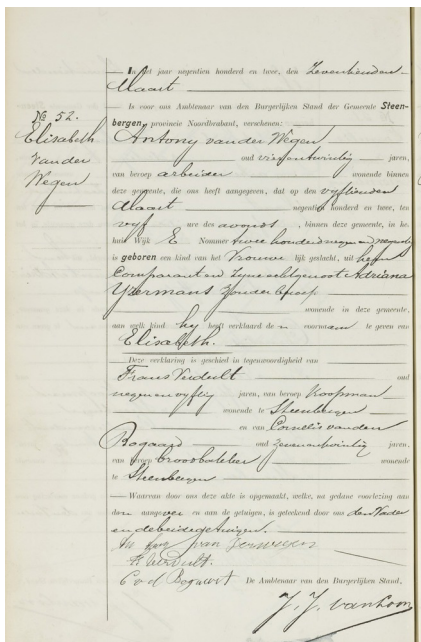 In het jaar negentien honderd en twee, den Zeventienden
Maart
Is voor ons Ambtenaar van den Burgerlijken Stand der Gemeente Steen-
bergen, provincie Noordbrabant, verschenen:
No 52.
Elisabeth
van der
Wegen
Antony van der Wegen
oud vierentwintig jaren,
van beroep arbeider wonende binnen
deze gemeente, die ons heeft aangegeven, dat op den vyftienden
Maart negentien honderd en twee, ten
vyf ure des avonds, binnen deze gemeente, in he
huis Wijk E Nommer twee honderd negen en negentig
is geboren een kind van het Vrouwelijk geslacht, uit hem
Comparant en Zyne echtgenoot Adriana
Yzermans Zonder beroep
wonende in deze gemeente,
aan welk kind hy heeft verklaard den voornaam te geven van
Elisabeth.
Deze verklaring is geschied in tegenwoordigheid van
Frans Verdult oud
negen en vyftig jaren, van beroep Koopman
wonende te Steenbergen
en van Cornelis van den
Bogaard oud Zevenentwintig jaren,
van beroep wonende
te Steenbergen
Waarvan door ons deze akte is opgemaakt, welke, na gedane voorlezing aan
den aangever en aan de getuigen, is geteekend door ons den Vader
en de beide getuigen.
van der wegen
F Verdult.
C v d Bogaart
De Ambtenaar van den Burgerlijken Stand,
J. J. van Loon